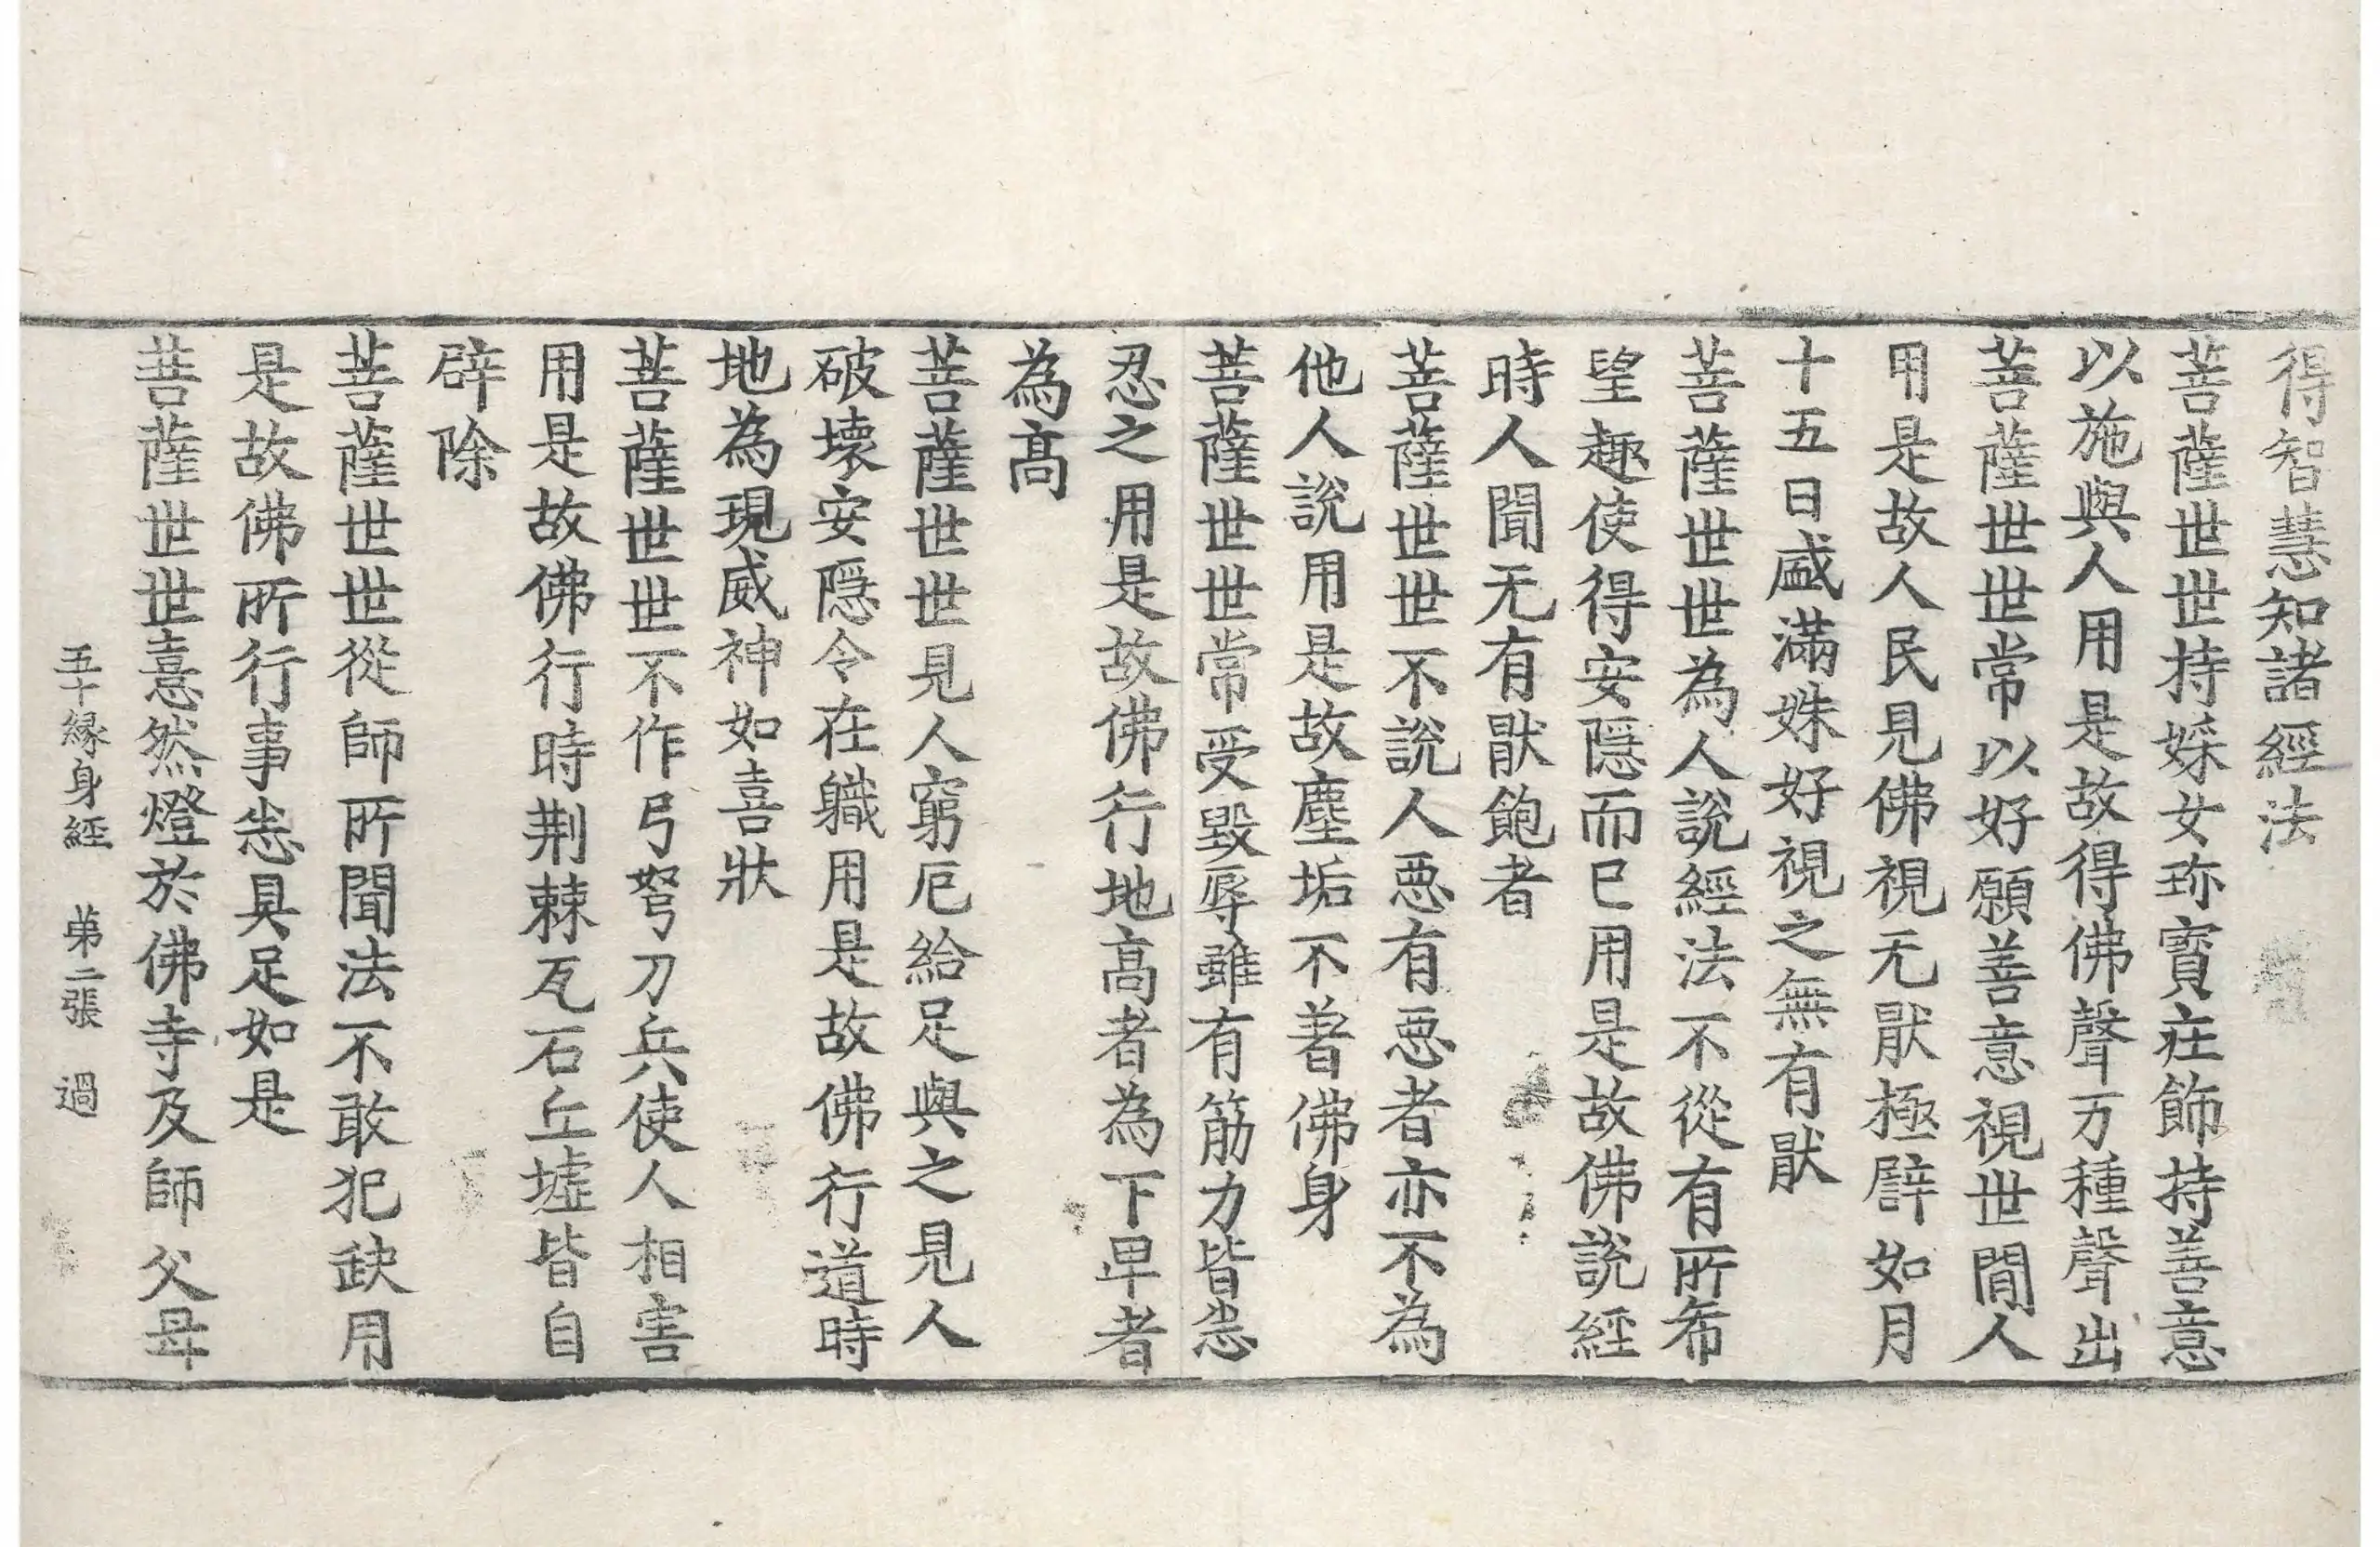 得智慧知諸經法
菩薩世世持婇女珎寶疰飾持善意
以施與人用是故得佛聲万種聲出
菩薩世世常以好願善意視世間人
用是故人民見佛視无猒極辟如月
十五日盛滿姝好視之無有猒
菩薩世世為人說經法不從有所希
望趣使得安隱而已用是故佛說經
時人聞无有猒飽者
菩薩世世不說人悪有悪者亦不為
他人說用是故塵垢不著佛身
菩薩世世常受毀辱雖有筋力皆㤙
忍之用是故佛行地高者為下卑者
為高
菩薩世世見人窮厄給足與之見人
破壞安隱令在軄用是故佛行道時
地為現威神如喜狀
菩薩世世不作弓弩刀兵使人相害
用是故佛行時荆棘瓦石丘墟皆自
辟除
菩薩世世從師所聞法不敢犯缺用
是故佛所行事悉具足如是
菩薩世世憙然燈於佛寺及師父母
五十緣身經　苐二張　過